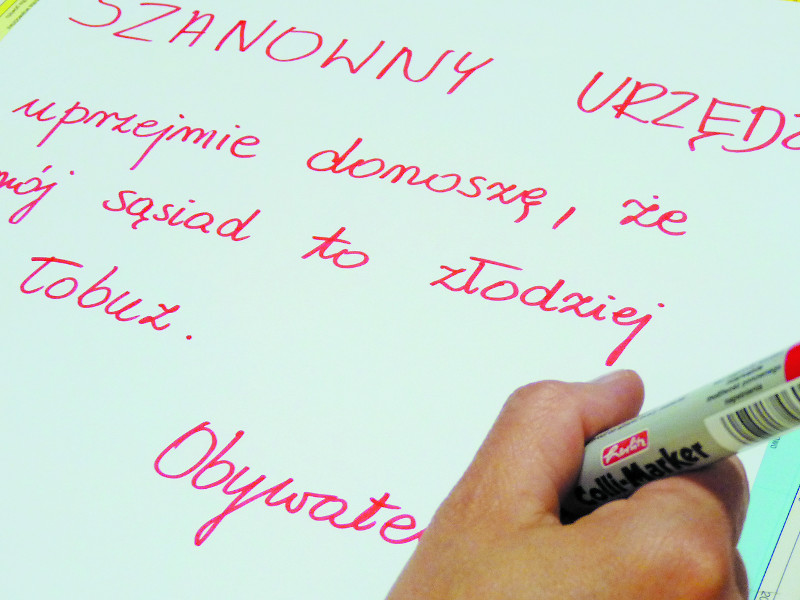 SZANOWNY URZĘDZ
uprzejmie donoszę, że
mój sąsiad to złodziej
łobuz.
Obywate
Herlitz
Colli-Marker